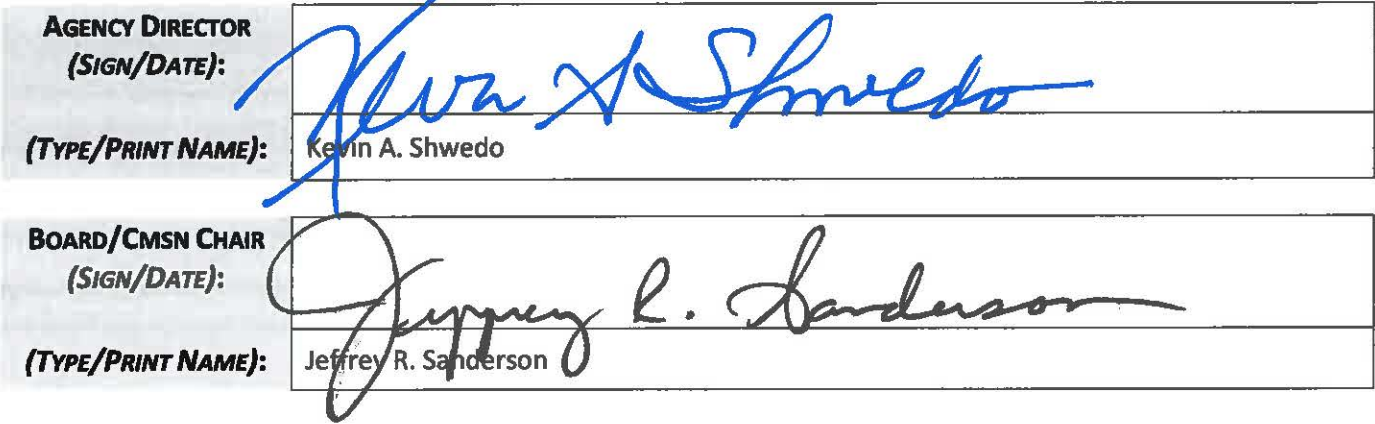 AGENCY DIRECTOR
(SIGN/DATE):
Kevin A Shwedo
(TYPE/PRINT NAME):
Kevin A. Shwedo
BOARD/CMSN CHAIR
(SIGN/DATE):
Jeffrey R. Sanderson
(TYPE/PRINT NAME):
Jeffrey R. Sanderson